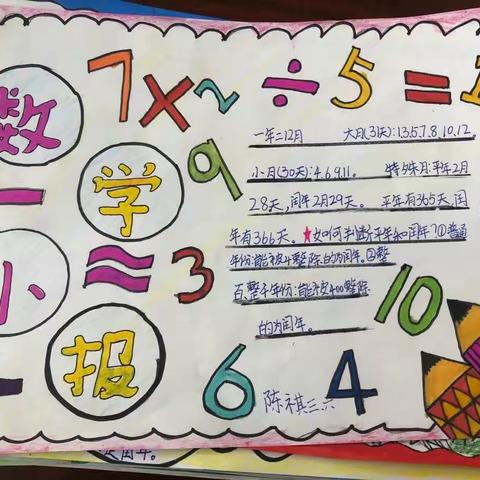 7×2÷5=
数
学
9
一年=12月 大月(31天):1.3.5.7.8.10.12.
小月(30天):4.6.9.11. 特殊月:平年2月
28天,闰年2月29天。 平年有365天,闰
年有366天。★如何判断平年和闰年?①普通
年份:能被4整除的为闰年。②整
百、整千年份:能被400整除
的为闰年。
小
≈3
10
报
6
4
陈祺三六